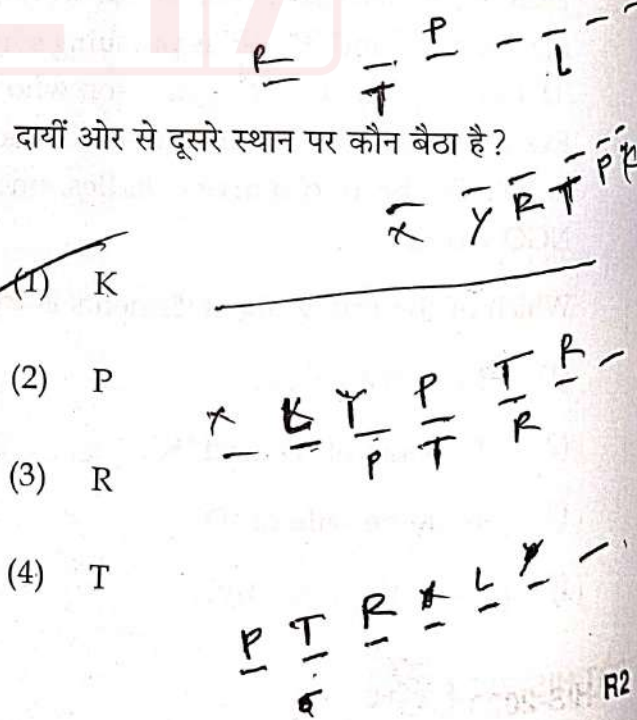 R T P L
दायीं ओर से दूसरे स्थान पर कौन बैठा है?
X Y R T P K
(1) K
(2) P
(3) R
(4) T
X Y P T R
P T R
P T R L
R2